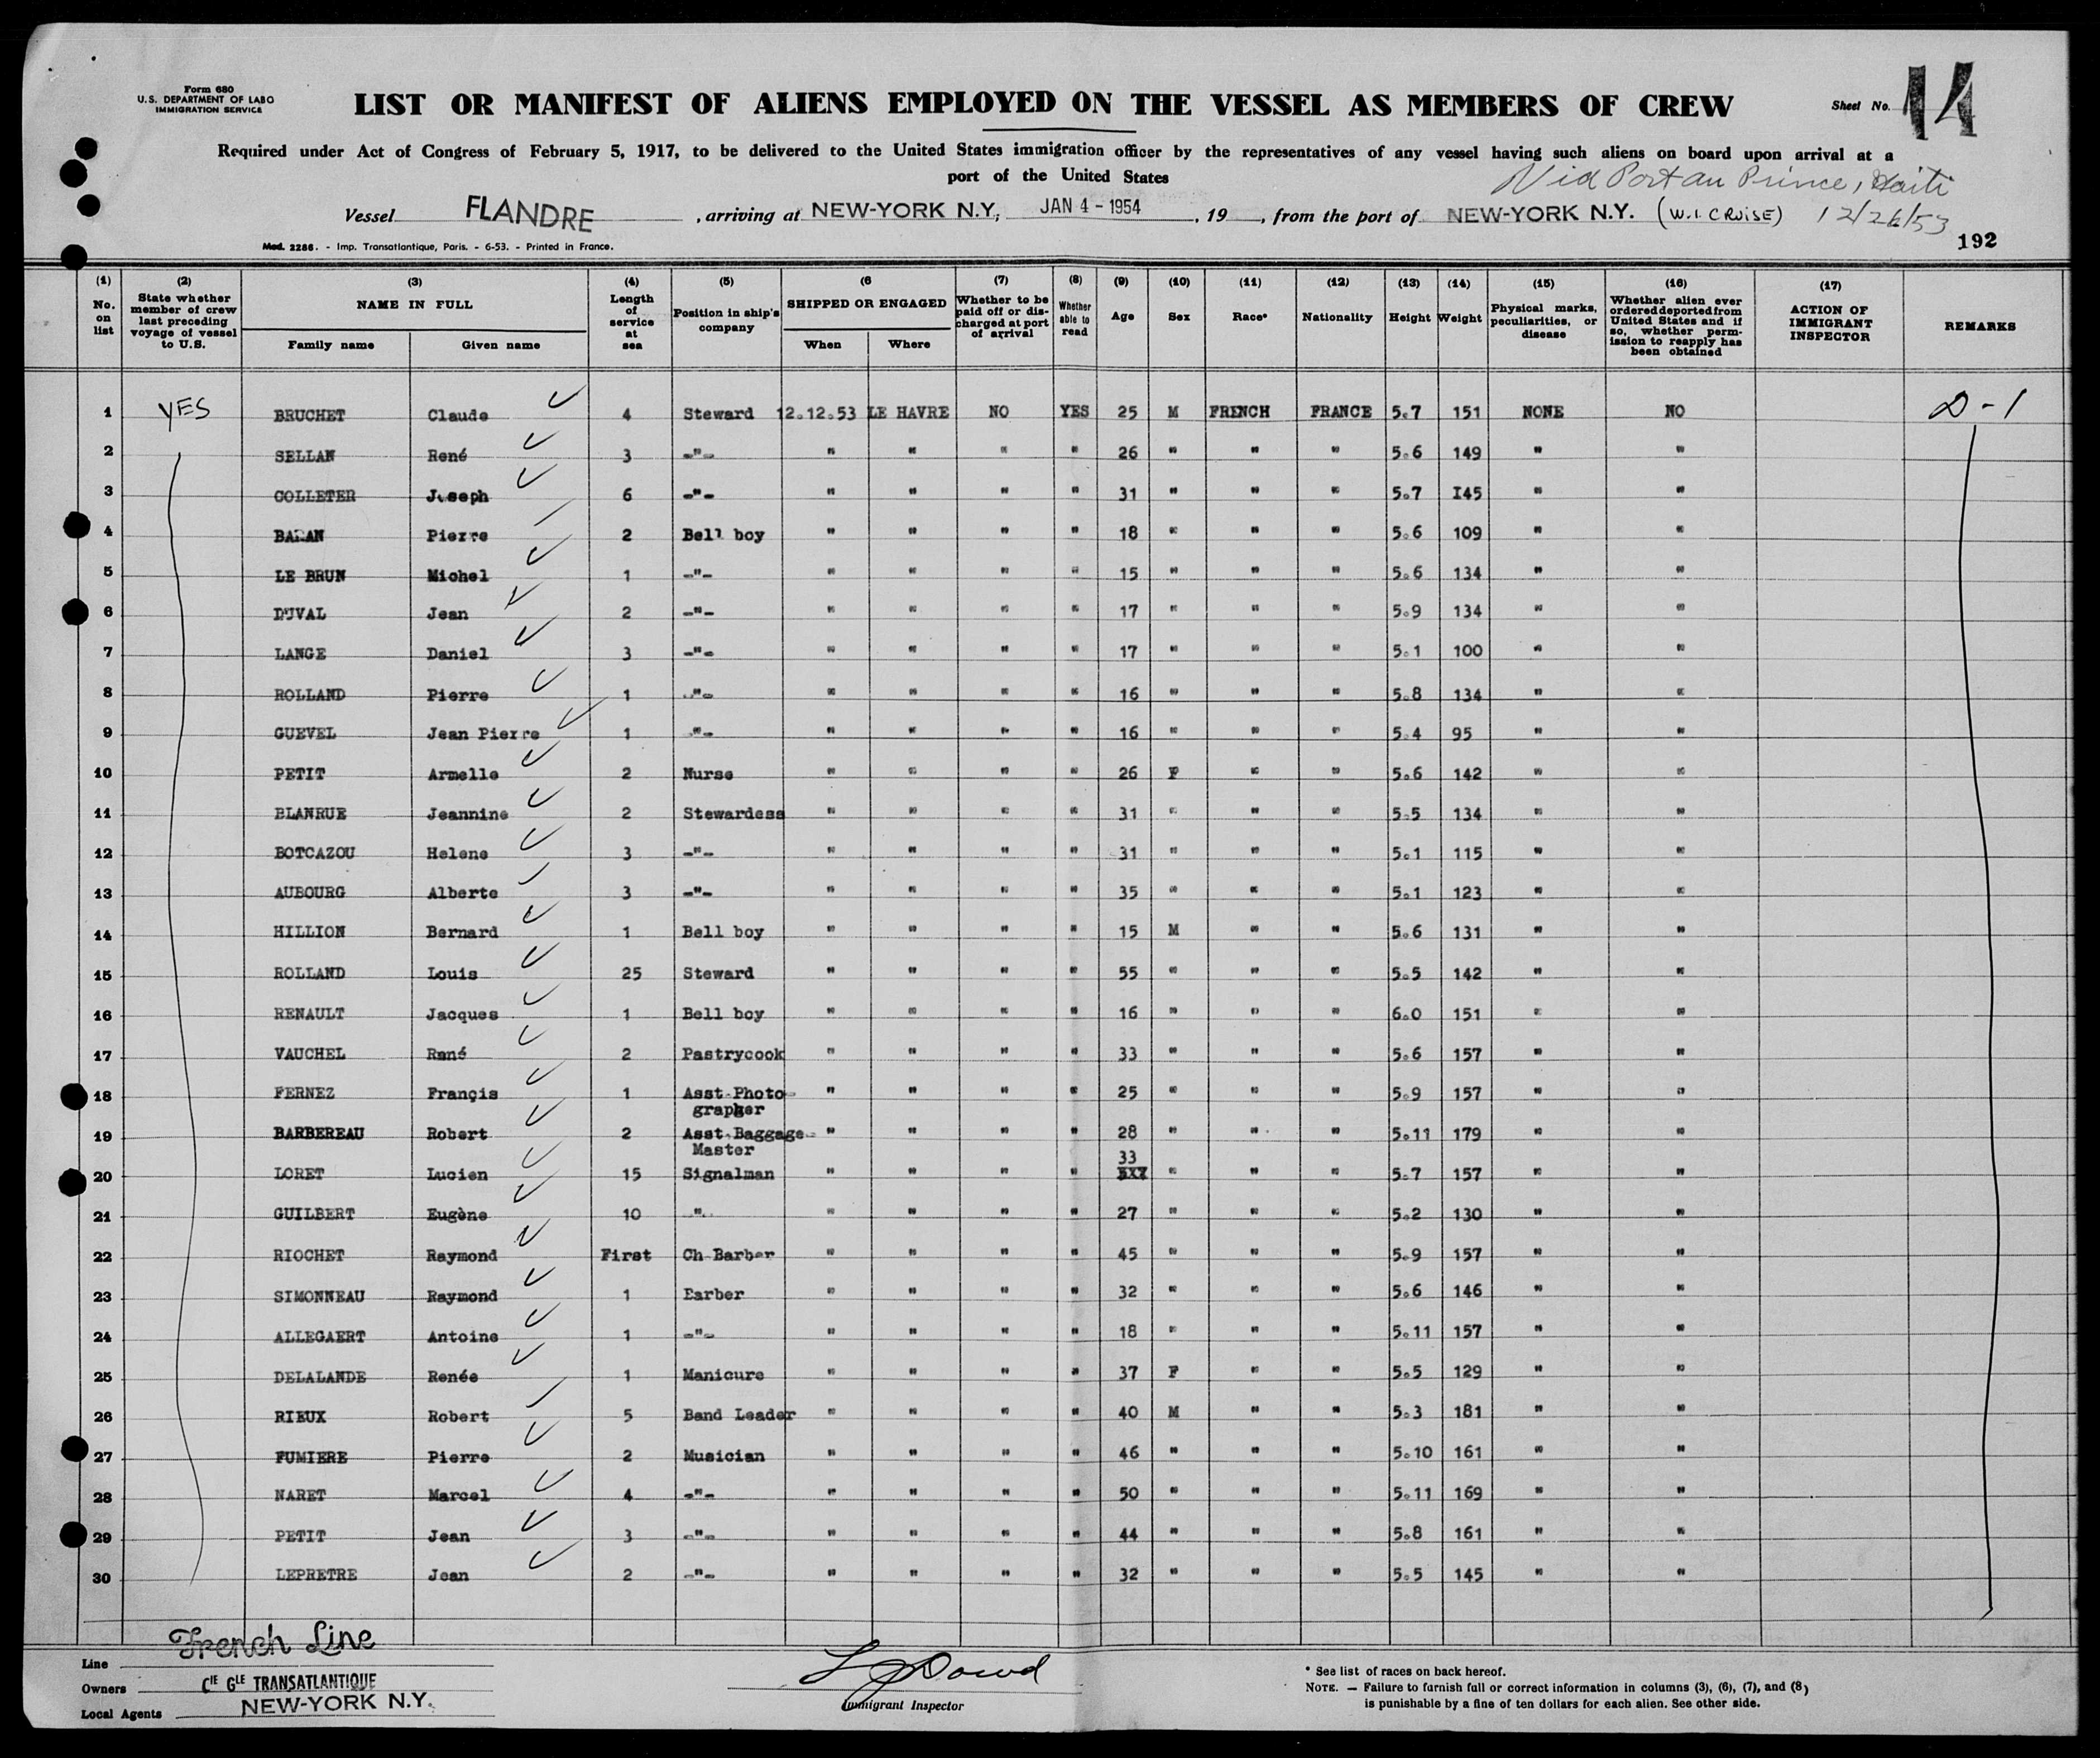 Form 680
U.S. DEPARTMENT OF LABO
IMMIGRATION SERVICE
LIST OR MANIFEST OF ALIENS EMPLOYED ON THE VESSEL AS MEMBERS OF CREW
Sheet No. 14
Required under Act of Congress of February 5, 1917, to be delivered to the United States immigration officer by the representatives of any vessel having such aliens on board upon arrival at a
port of the United States
Port au Prince, Haiti
Vessel FLANDRE , arriving at NEW-YORK N.Y, JAN 4 - 1954 , 19 , from the port of NEW-YORK N.Y. (W.I. CRUISE) 12/26/53
Mod. 2286. - Imp. Transatlantique, Paris. - 6-53. - Printed in France.
192
(1) No. on list (2) State whether member of crew last preceding voyage of vessel to U.S. (3) NAME IN FULL Family name Given name (4) Length of service at sea (5) Position in ship's company (6 SHIPPED OR ENGAGED When Where (7) Whether to be paid off or discharged at port of arrival (8) Whether able to read (9) Age (10) Sex (11) Race* (12) Nationality (13) Height (14) Weight (15) Physical marks, peculiarities, or disease (16) Whether alien ever ordered deported from United States and if so, whether permission to reapply has been obtained (17) ACTION OF IMMIGRANT INSPECTOR REMARKS
1 YES BRUCHET Claude 4 Steward 12.12.53 LE HAVRE NO YES 25 M FRENCH FRANCE 5.7 151 NONE NO D-1
2 SELLAN René 3 -"- " " " " 26 " " " 5.6 149 " "
3 COLLETER Joseph 6 -"- " " " " 31 " " " 5.7 I45 " "
4 Pierre 2 Bell boy " " " " 18 " " " 5.6 109 " "
5 LE BRUN Michel 1 -"- " " " " 15 " " " 5.6 134 " "
6 DUVAL Jean 2 -"- " " " " 17 " " " 5.9 134 " "
7 LANGE Daniel 3 -"- " " " " 17 " " " 5.1 100 " "
8 ROLLAND Pierre 1 -"- " " " " 16 " " " 5.8 134 " "
9 GUEVEL Jean Pierre 1 -"- " " " " 16 " " " 5.4 95 " "
10 PETIT Armelle 2 Nurse " " " " 26 F " " 5.6 142 " "
11 BLANRUE Jeannine 2 Stewardess " " " " 31 " " " 5.5 134 " "
12 BOTCAZOU Helene 3 -"- " " " " 31 " " " 5.1 115 " "
13 AUBOURG Alberte 3 -"- " " " " 35 " " " 5.1 123 " "
14 HILLION Bernard 1 Bell boy " " " " 15 M " " 5.6 131 " "
15 ROLLAND Louis 25 Steward " " " " 55 " " " 5.5 142 " "
16 RENAULT Jacques 1 Bell boy " " " " 16 " " " 6.0 151 " "
17 VAUCHEL René 2 Pastrycook " " " " 33 " " " 5.6 157 " "
18 FERNEZ Françis 1 Asst Photo- " " " " 25 " " " 5.9 157 " "
grapher
19 BARBEREAU Robert 2 Asst.Baggage- " " " " 28 " " " 5.11 179 " "
Master 33
20 LORET Lucien 15 Signalman " " " " " " " 5.7 157 " "
21 GUILBERT Eugène 10 -"- " " " " 27 " " " 5.2 130 " "
22 RIOCHET Raymond First Ch Barber " " " " 45 " " " 5.9 157 " "
23 SIMONNEAU Raymond 1 Barber " " " " 32 " " " 5.6 146 " "
24 ALLEGAERT Antoine 1 -"- " " " " 18 " " " 5.11 157 " "
25 DELALANDE Renée 1 Manicure " " " " 37 F " " 5.5 129 " "
26 RIEUX Robert 5 Band Leader " " " " 40 M " " 5.3 181 " "
27 FUMIERE Pierre 2 Musician " " " " 46 " " " 5.10 161 " "
28 NARET Marcel 4 -"- " " " " 50 " " " 5.11 169 " "
29 PETIT Jean 3 -"- " " " " 44 " " " 5.8 161 " "
30 LEPRETRE Jean 2 -"- " " " " 32 " " " 5.5 145 " "
Line French Line
Owners CIE GLE TRANSATLANTIQUE
Local Agents NEW-YORK N.Y.
Immigrant Inspector
* See list of races on back hereof.
NOTE. — Failure to furnish full or correct information in columns (3), (6), (7), and (8)
is punishable by a fine of ten dollars for each alien. See other side.